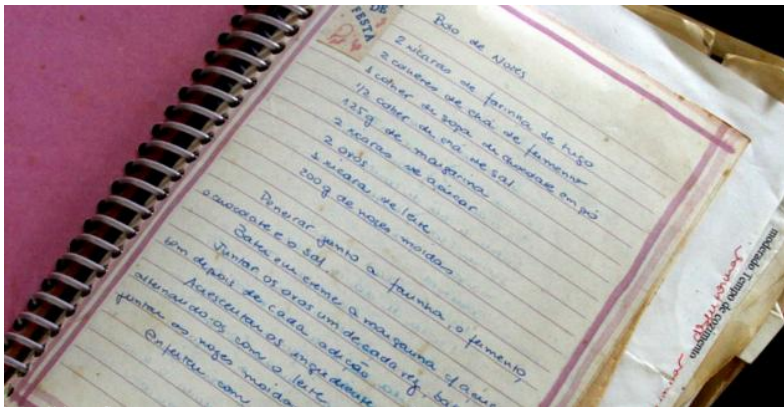 DE
FESTA
Bolo de Nozes
2 xícaras de farinha de trigo
2 colheres de chá de fermento
1 colher de sopa de chocolate em pó
1/2 colher de chá de sal
125g de margarina
2 xícaras de açúcar
2 ovos
1 xícara de leite
200g de nozes moídas
Peneirar junto a farinha, o fermento,
o chocolate e o sal.
Bater em creme a margarina c/ açúcar
Juntar os ovos um de cada vez,
bem depois de cada adição
Acrescentar os ingredientes
alternando-os com o leite
juntar as nozes moídas
Enfeitar com
moderado Tempo de cozimento